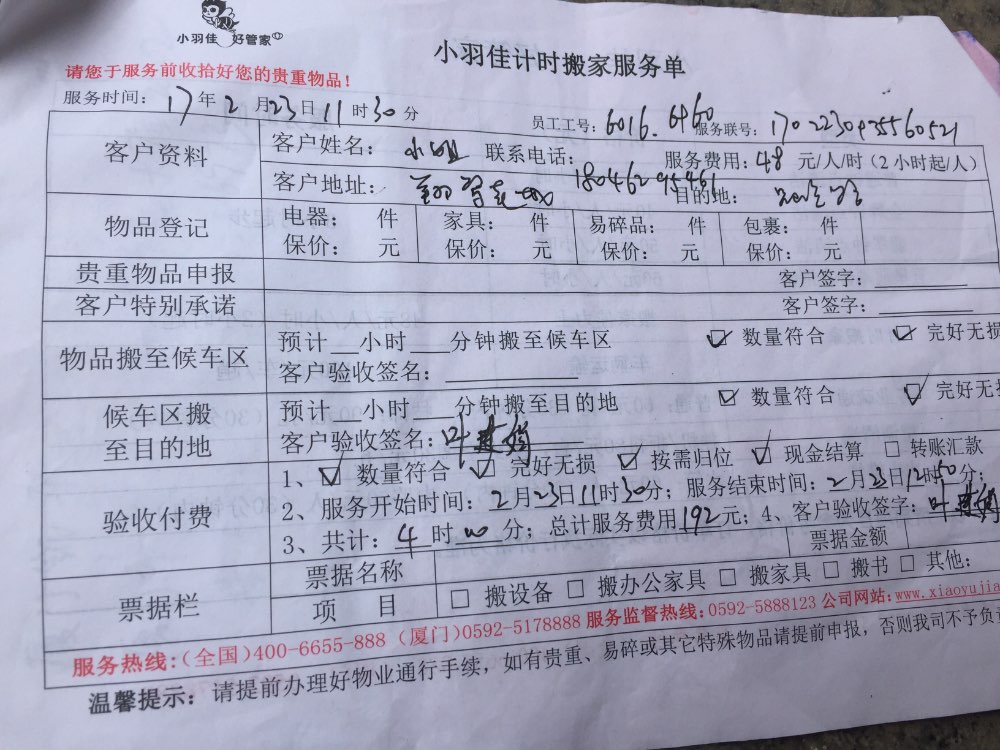 小羽佳 好管家
小羽佳计时搬家服务单
请您于服务前收拾好您的贵重物品！
服务时间：17年2月23日11时30分
员工工号：6016.6460 服务联号：17022309355560521
客户资料 客户姓名：小姐 联系电话：18046295461 服务费用：48元/人/时（2小时起/人）
客户地址： 目的地：
物品登记 电器： 件 家具： 件 易碎品： 件 包裹： 件
保价： 元 保价： 元 保价： 元 保价： 元
贵重物品申报 客户签字：
客户特别承诺 客户签字：
物品搬至候车区 预计__小时___分钟搬至候车区 ☑ 数量符合 ☑ 完好无损
客户验收签名：
候车区搬至目的地 预计__小时___分钟搬至目的地 ☑ 数量符合 ☑ 完好无
客户验收签名：叶
验收付费 1、☑ 数量符合 ☑ 完好无损 ☑ 按需归位 ☑ 现金结算 □ 转账汇款
2、服务开始时间：2月23日11时30分；服务结束时间：2月23日12时50分；
3、共计：4时00分；总计服务费用192元；4、客户验收签字：叶
票据栏 票据名称 票据金额
项 目 □ 搬设备 □ 搬办公家具 □ 搬家具 □ 搬书 □ 其他：
服务热线：（全国）400-6655-888（厦门）0592-5178888 服务监督热线：0592-5888123 公司网站：www.xiaoyujia
温馨提示：请提前办理好物业通行手续，如有贵重、易碎或其它特殊物品请提前申报，否则我司不予负